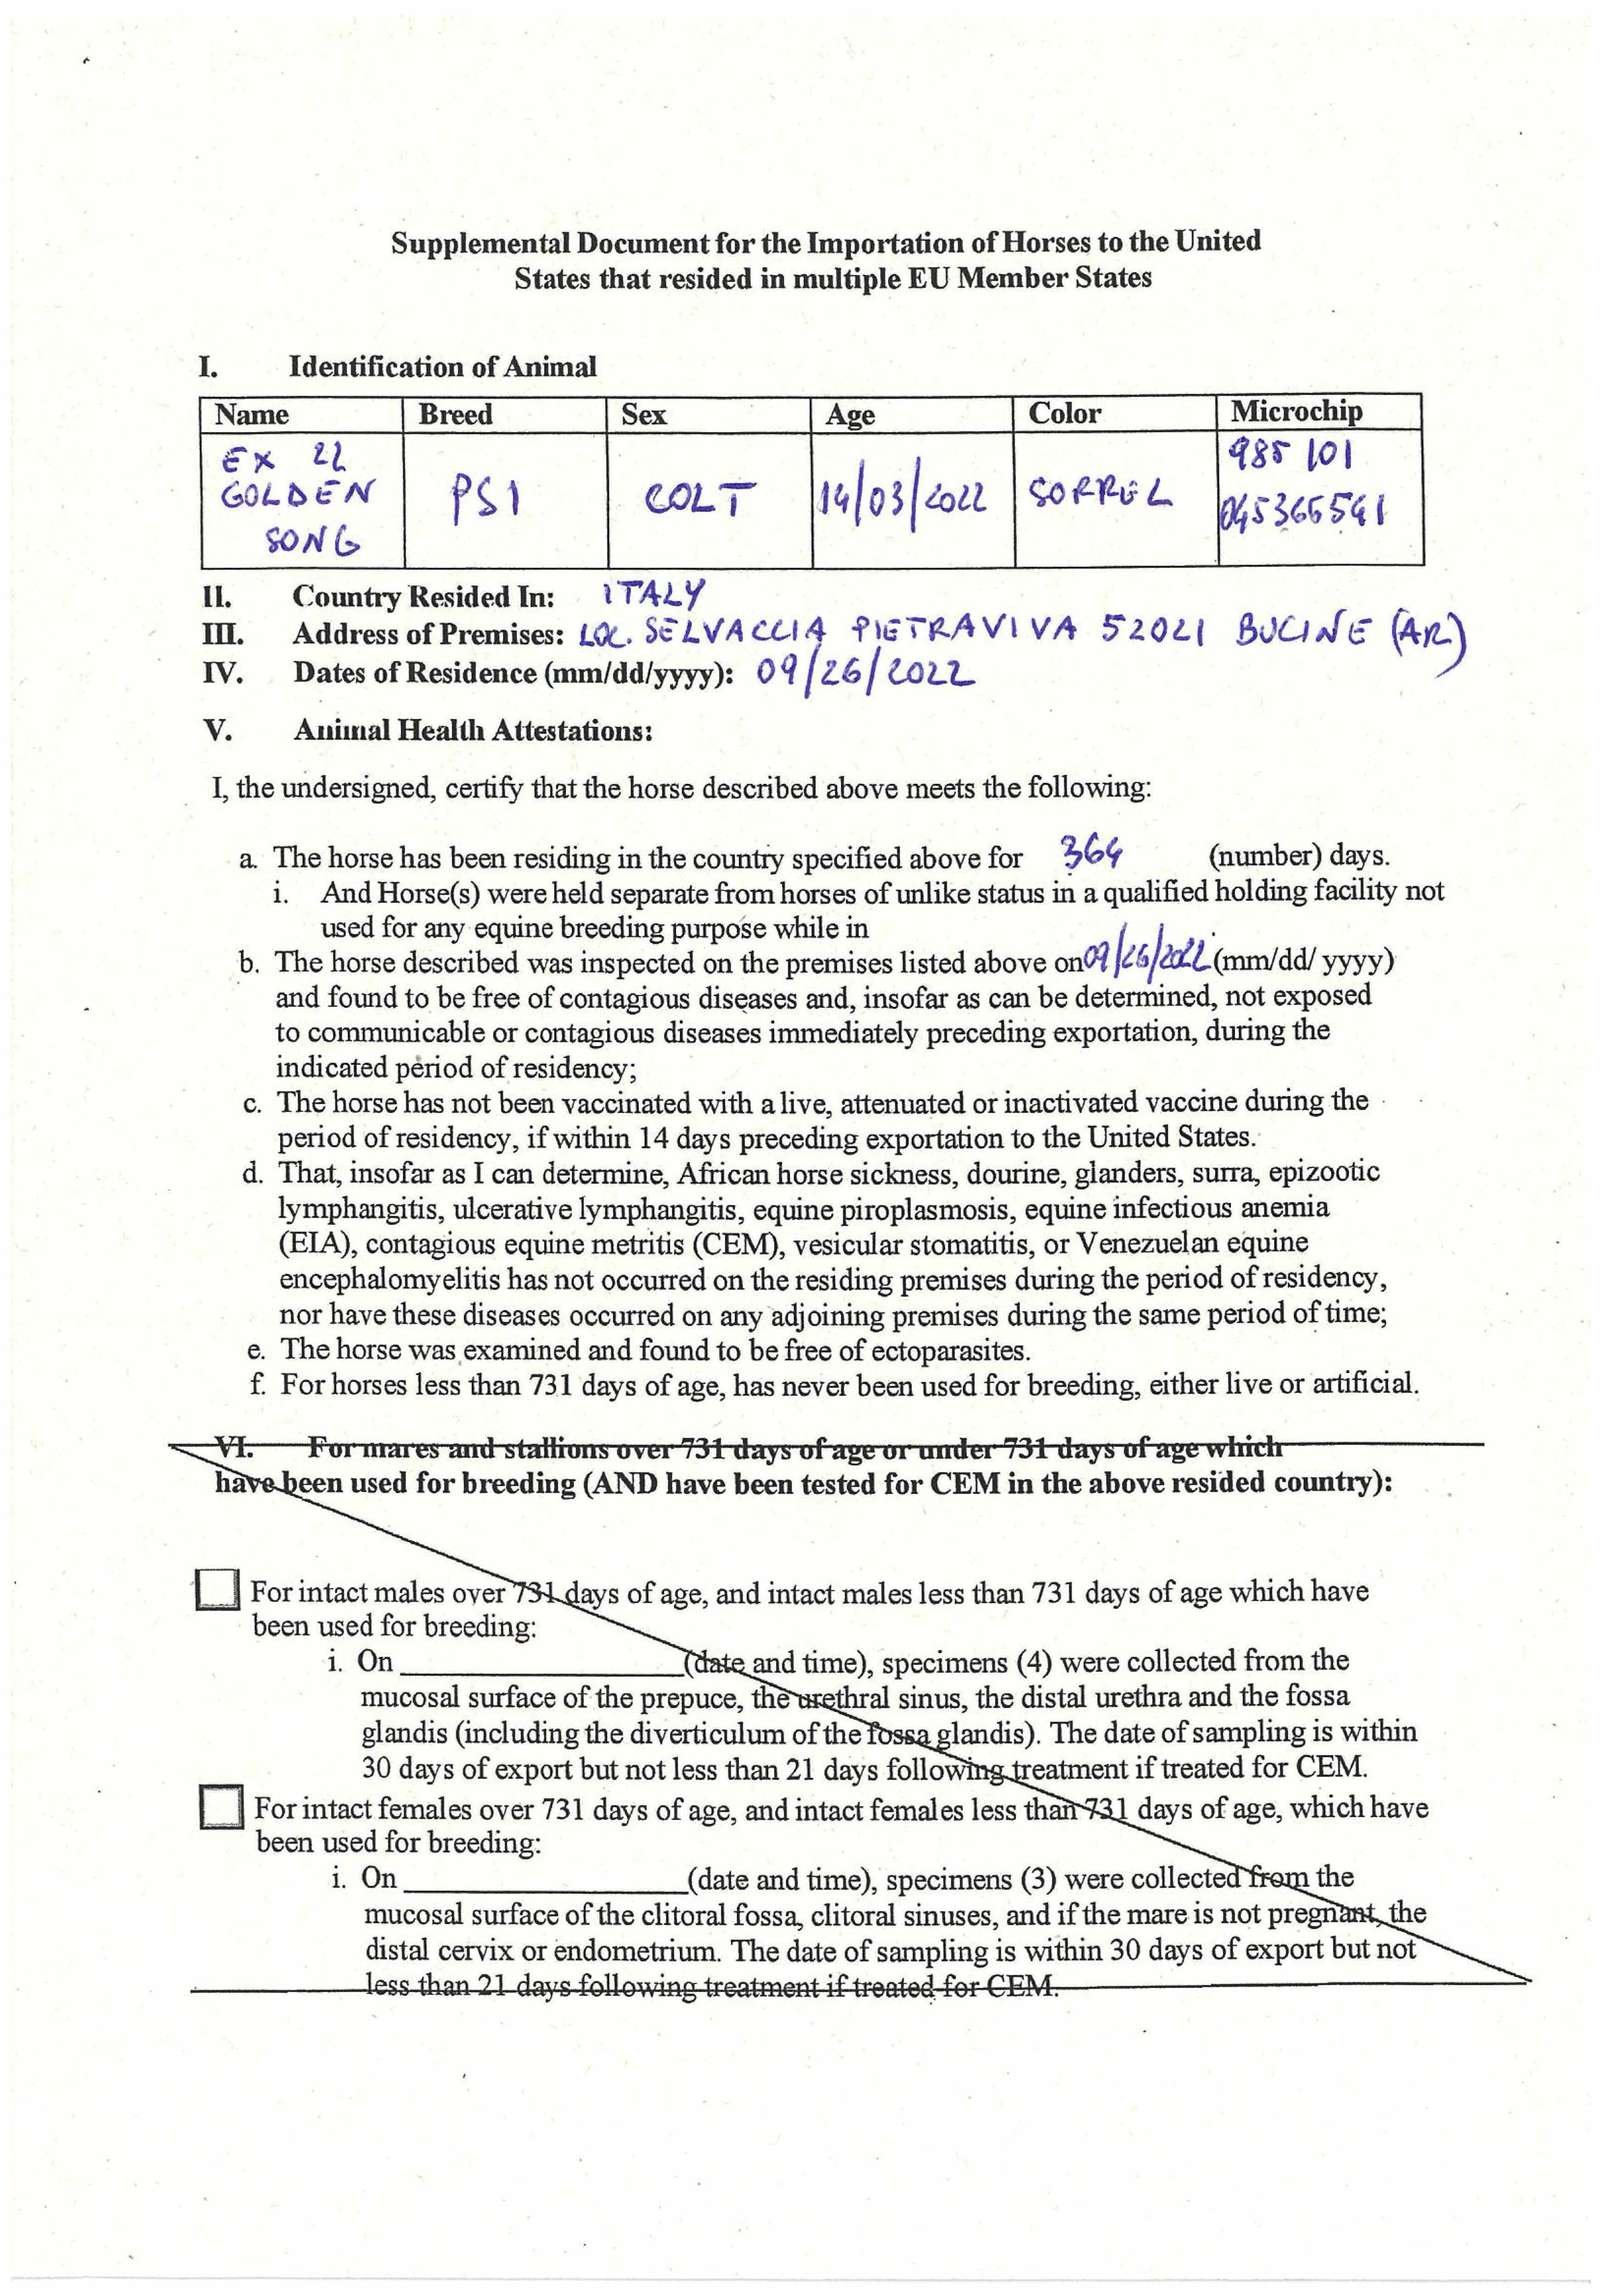 Supplemental Document for the Importation of Horses to the United
States that resided in multiple EU Member States
I. Identification of Animal
Name Breed Sex Age Color Microchip
EX 22 GOLDEN SONG PSI COLT 14/03/2022 SORREL 985 101 045366541
II. Country Resided In: ITALY
III. Address of Premises: LOC. SELVACCIA PIETRAVIVA 52021 BUCINE (AR)
IV. Dates of Residence (mm/dd/yyyy): 09/26/2022
V. Animal Health Attestations:
I, the undersigned, certify that the horse described above meets the following:
a. The horse has been residing in the country specified above for 364 (number) days.
i. And Horse(s) were held separate from horses of unlike status in a qualified holding facility not
used for any equine breeding purpose while in
b. The horse described was inspected on the premises listed above on 09/26/2022 (mm/dd/ yyyy)
and found to be free of contagious diseases and, insofar as can be determined, not exposed
to communicable or contagious diseases immediately preceding exportation, during the
indicated period of residency;
c. The horse has not been vaccinated with a live, attenuated or inactivated vaccine during the
period of residency, if within 14 days preceding exportation to the United States.
d. That, insofar as I can determine, African horse sickness, dourine, glanders, surra, epizootic
lymphangitis, ulcerative lymphangitis, equine piroplasmosis, equine infectious anemia
(EIA), contagious equine metritis (CEM), vesicular stomatitis, or Venezuelan equine
encephalomyelitis has not occurred on the residing premises during the period of residency,
nor have these diseases occurred on any adjoining premises during the same period of time;
e. The horse was examined and found to be free of ectoparasites.
f. For horses less than 731 days of age, has never been used for breeding, either live or artificial.
VI. For mares and stallions over 731 days of age or under 731 days of age which
have been used for breeding (AND have been tested for CEM in the above resided country):
For intact males over 731 days of age, and intact males less than 731 days of age which have
been used for breeding:
i. On ____________________(date and time), specimens (4) were collected from the
mucosal surface of the prepuce, the urethral sinus, the distal urethra and the fossa
glandis (including the diverticulum of the fossa glandis). The date of sampling is within
30 days of export but not less than 21 days following treatment if treated for CEM.
For intact females over 731 days of age, and intact females less than 731 days of age, which have
been used for breeding:
i. On ____________________(date and time), specimens (3) were collected from the
mucosal surface of the clitoral fossa, clitoral sinuses, and if the mare is not pregnant, the
distal cervix or endometrium. The date of sampling is within 30 days of export but not
less than 21 days following treatment if treated for CEM.